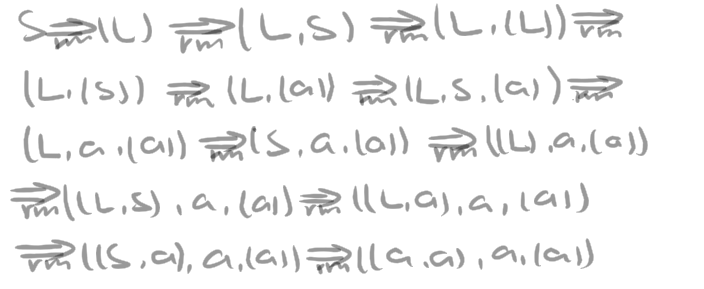 S ⇒rm (L) ⇒rm (L,S) ⇒rm (L,(L)) ⇒rm
(L,(S)) ⇒rm (L,(a)) ⇒rm (L,S,(a)) ⇒rm
(L,a,(a)) ⇒rm (S,a,(a)) ⇒rm ((L),a,(a))
⇒rm ((L,S),a,(a)) ⇒rm ((L,a),a,(a))
⇒rm ((S,a),a,(a)) ⇒rm ((a,a),a,(a))